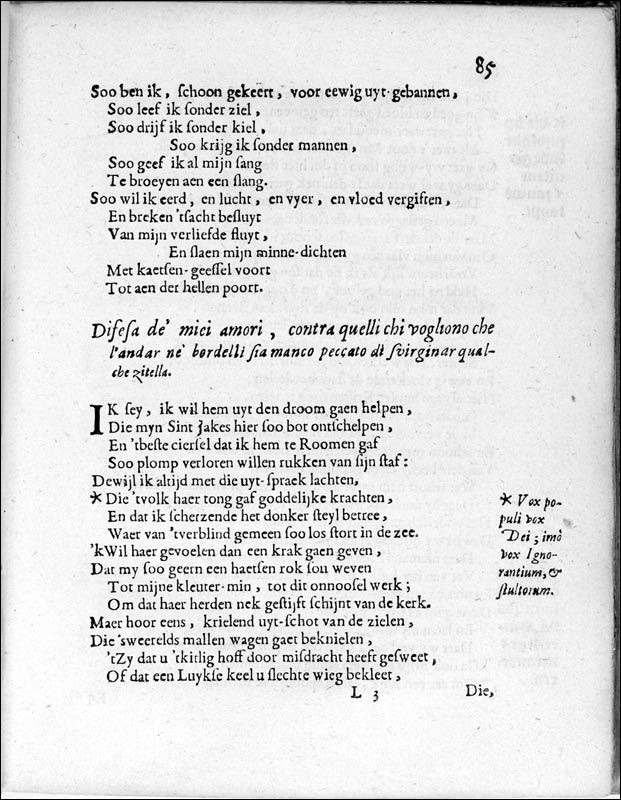 85
Soo ben ik, ſchoon gekeert, voor eewig uyt-gebannen,
Soo leef ik ſonder ziel,
Soo drijf ik ſonder kiel,
Soo krijg ik ſonder mannen,
Soo geef ik al mijn ſang
Te broeyen aen een ſlang.
Soo wil ik eerd, en lucht, en vyer, en vloed vergiften,
En breken 'tſacht beſluyt
Van mijn verliefde fluyt,
En ſlaen mijn minne-dichten
Met kaetſen-geeſſel voort
Tot aen der hellen poort.
Difeſa de' miei amori, contra quelli chi vogliono che
l'andar ne' bordelli ſia manco peccato di ſvirginar qual-
che zitella.
IK ſey, ik wil hem uyt den droom gaen helpen,
Die myn Sint Jakes hier ſoo bot ontſchelpen,
En 'tbeſte cierſel dat ik hem te Roomen gaf
Soo plomp verloren willen rukken van ſijn ſtaf:
Dewijl ik altijd met die uyt-ſpraek lachten,
* Die 'tvolk haer tong gaf goddelijke krachten,
En dat ik ſcherzende het donker ſteyl betree,
Waer van 'tverblind gemeen ſoo los ſtort in de zee.
'kWil haer gevoelen dan een krak gaen geven,
Dat my ſoo geern een haetſen rok ſou weven
Tot mijne kleuter-min, tot dit onnooſel werk;
Om dat haer herden nek geſtijft ſchijnt van de kerk.
Maer hoor eens, krielend uyt-ſchot van de zielen,
Die 'sweerelds mallen wagen gaet beknielen,
'tZy dat u 'tkitlig hoff door miſdracht heeft geſweet,
Of dat een Luykſe keel u ſlechte wieg bekleet,
* Vox po-
puli vox
Dei; imò
vox Igno-
rantium, &
ſtultorum.
L 3
Die,